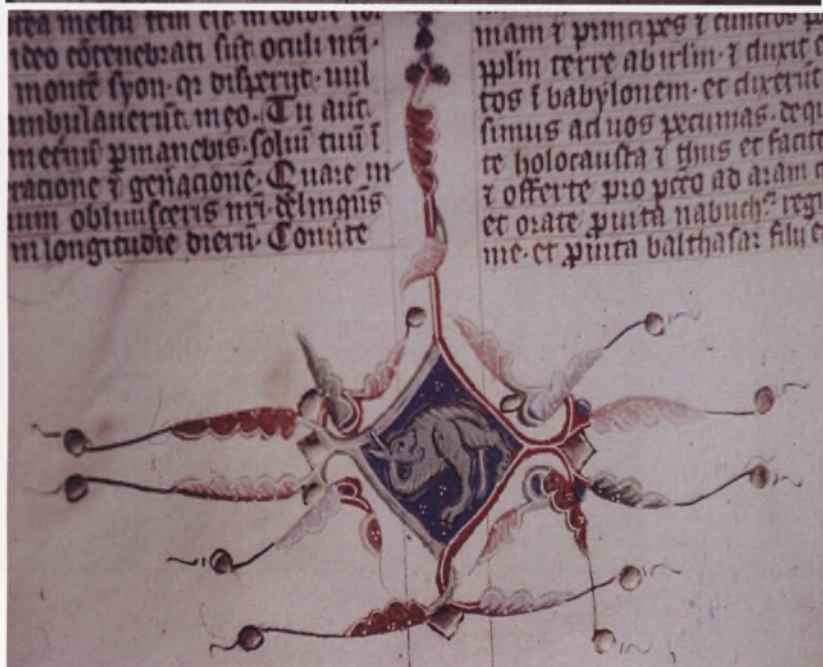 mestū
ideo cōtenebrati sūt oculi nr̄i·
montē syon· qr disperijt· uul
ambulauerūt in eo· Tu autē
in eternū ꝑmanebis· soliū tuū ī
racione ⁊ gen̄acionē· Quare in
uum obliuisceris nr̄i· delinquis
in longitudīe dierū· Conūte
mam ⁊ principes ⁊ cunctos
pplm terre ab irlm· ⁊ duxit
tos ī babylonem· et dixerūt
simus ad uos pecunias· de
te holocausta ⁊ thus et facite
⁊ offerte pro pctō ad aram
et orate ꝓ uita nabuch
me· et ꝓ uita balthasar filii